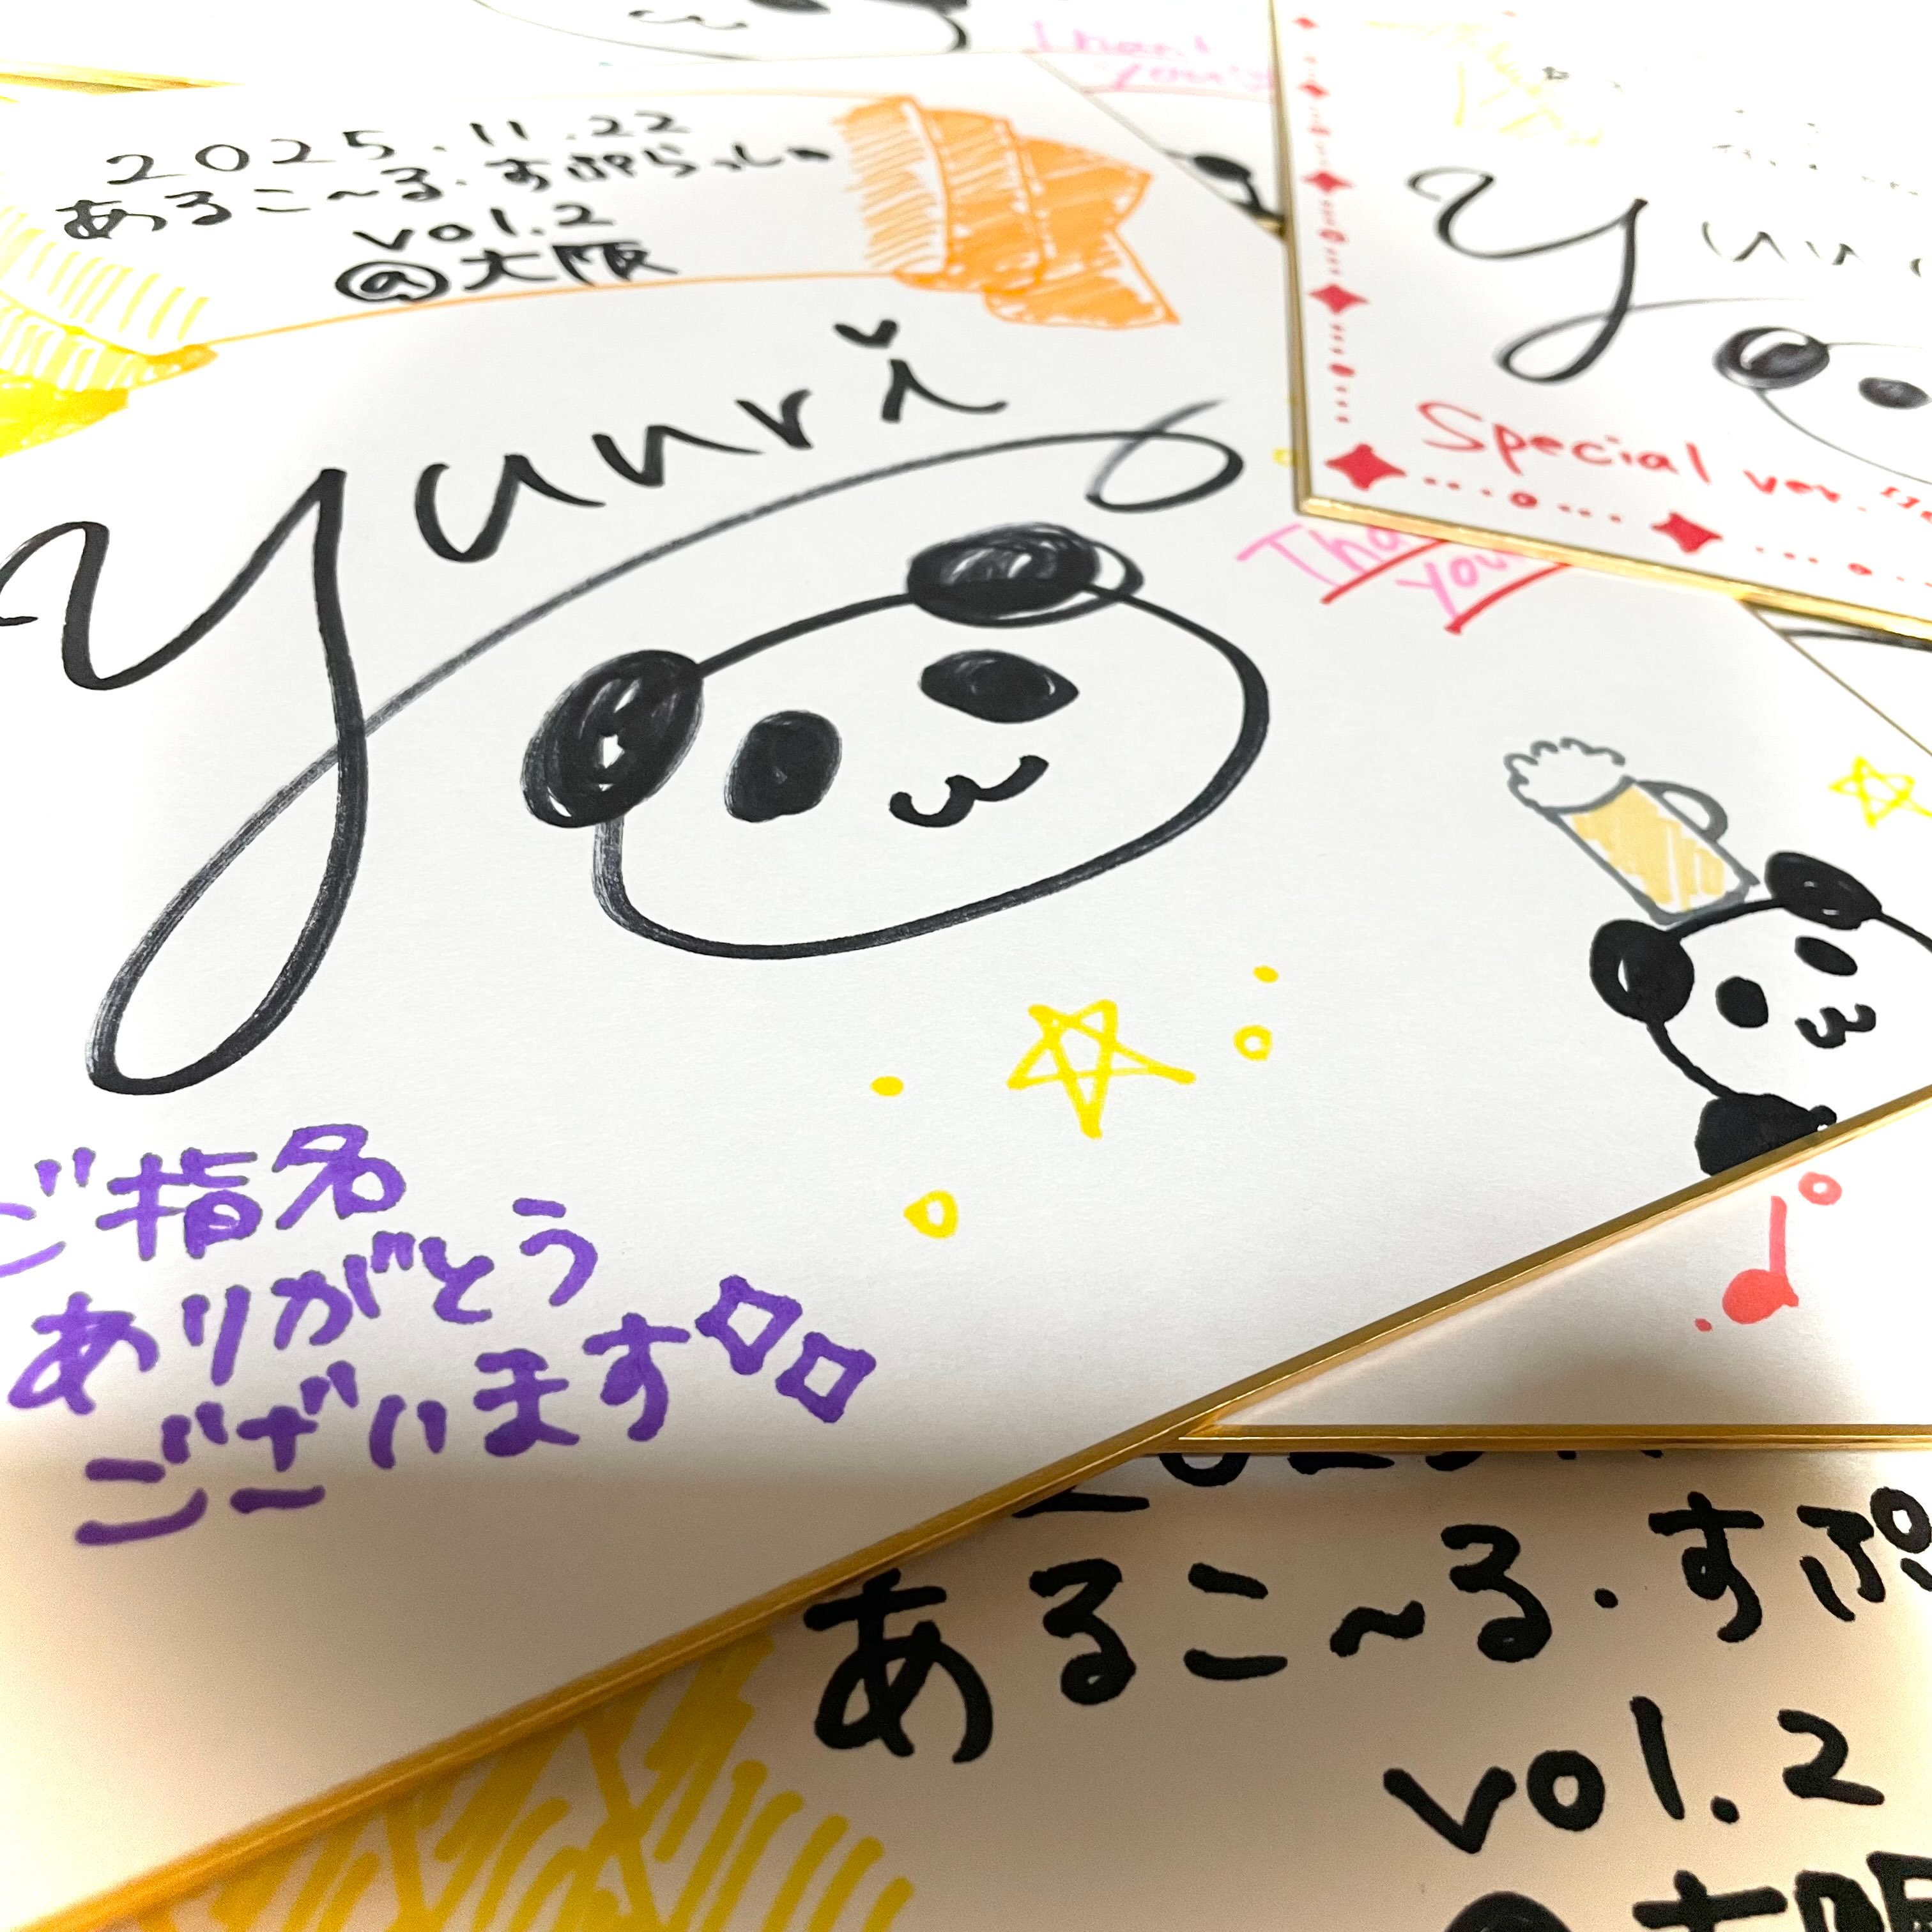 Thank
you
2025.11.22
あるこ～る・すぷらっしゅ
vol.2
@大阪
yuuri
Special ver.
ご指名
ありがとう
ございます
あるこ～る・すぷ
vol.2
@大阪